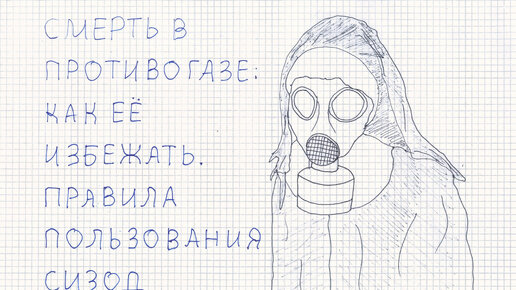 СМЕРТЬ В
ПРОТИВОГАЗЕ:
КАК ЕЁ
ИЗБЕЖАТЬ.
ПРАВИЛА
ПОЛЬЗОВАНИЯ
СИЗОД